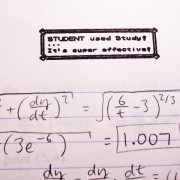 STUDENT used Study!
...
It's super effective!
+ (dy/dt)² = √(6/t - 3)^2/3
(3e^-6) = 1.007
dy dy dt